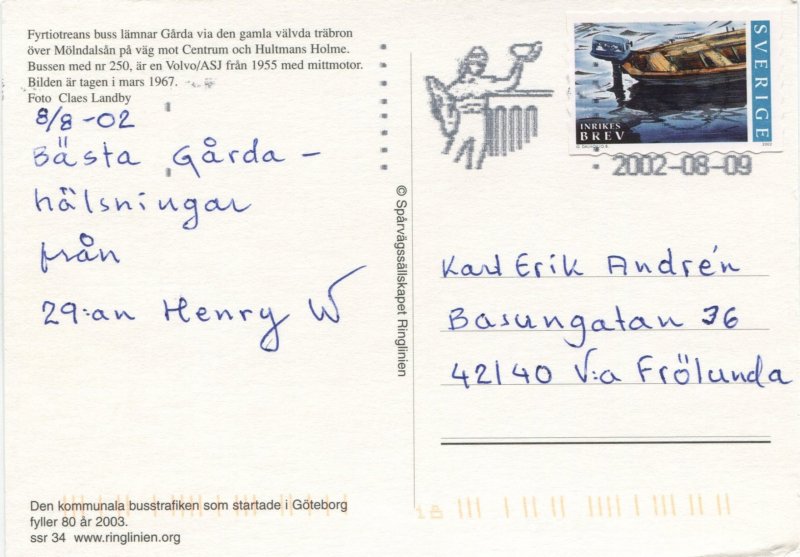 Fyrtiotreans buss lämnar Gårda via den gamla välvda träbron
över Mölndalsån på väg mot Centrum och Hultmans Holme.
Bussen med nr 250, är en Volvo/ASJ från 1955 med mittmotor.
Bilden är tagen i mars 1967.
Foto Claes Landby
8/8-02
Bästa Gårda-
hälsningar
från
29:an Henry W
Den kommunala busstrafiken som startade i Göteborg
fyller 80 år 2003.
ssr 34 www.ringlinien.org
© Spårvägssällskapet Ringlinien
SVERIGE
INRIKES
BREV
2002
2002-08-09
Karl Erik Andrén
Basungatan 36
42140 V:a Frölunda